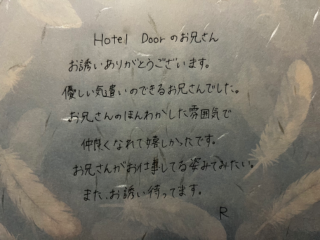 Hotel Doorのお兄さん
お誘いありがとうございます。
優しい気遣いのできるお兄さんでした。
お兄さんのほんわかした雰囲気で
仲良くなれて嬉しかったです。
お兄さんがお仕事してる姿みてみたい。
また、お誘い待ってます。
R